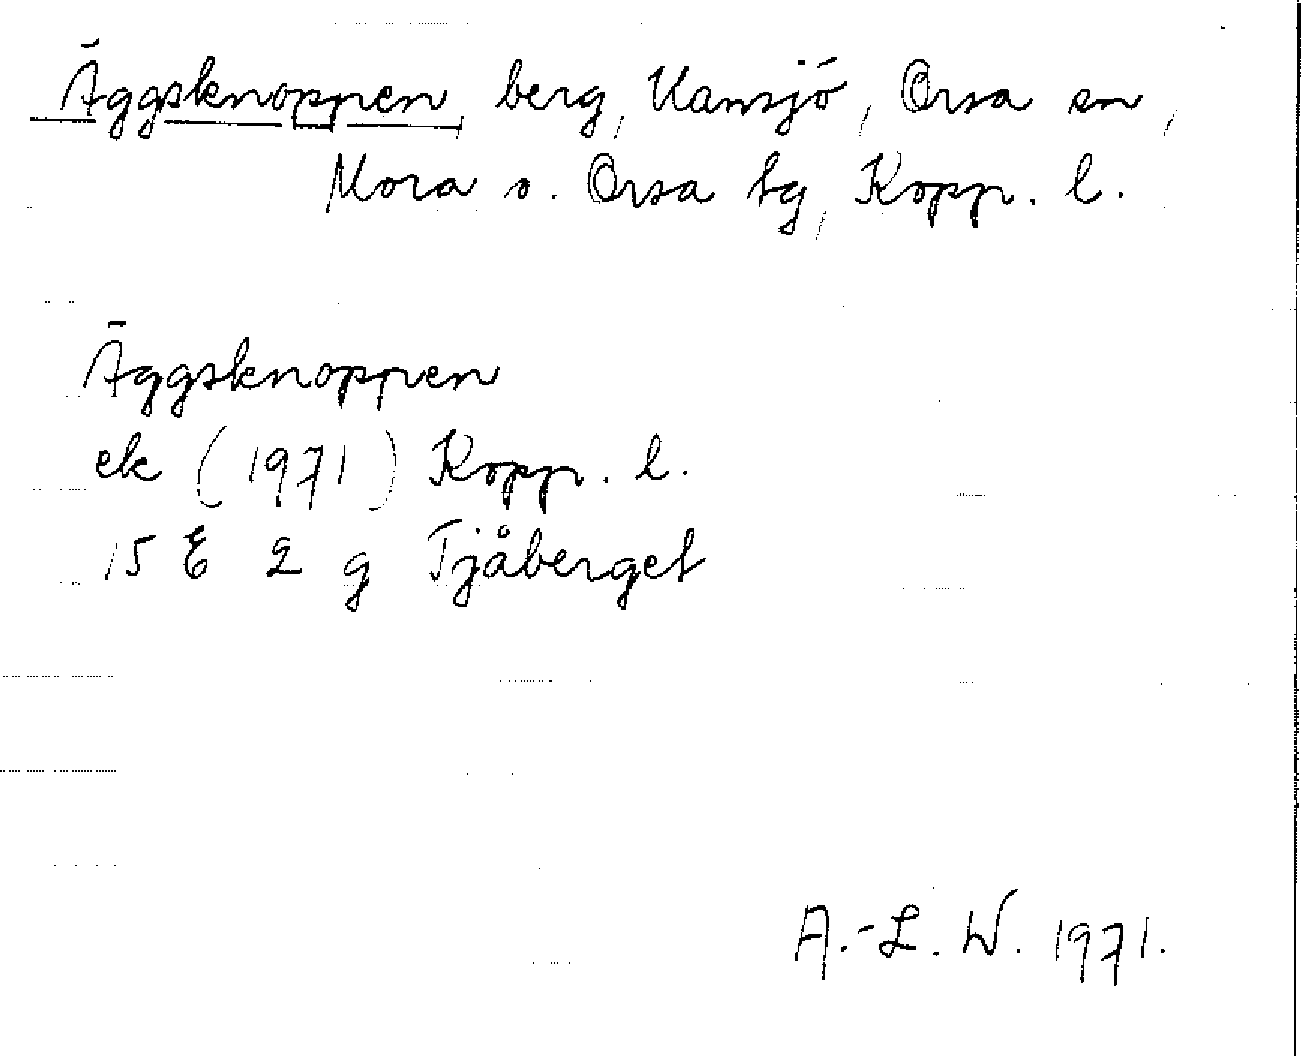 Äggsknoppen berg, Hamsjö, Orsa sn,
Mora o. Orsa tg, Kopp. l.
Äggsknoppen
ek (1971) Kopp. l.
15 E 2 g Tjåberget
A.-L. W. 1971.